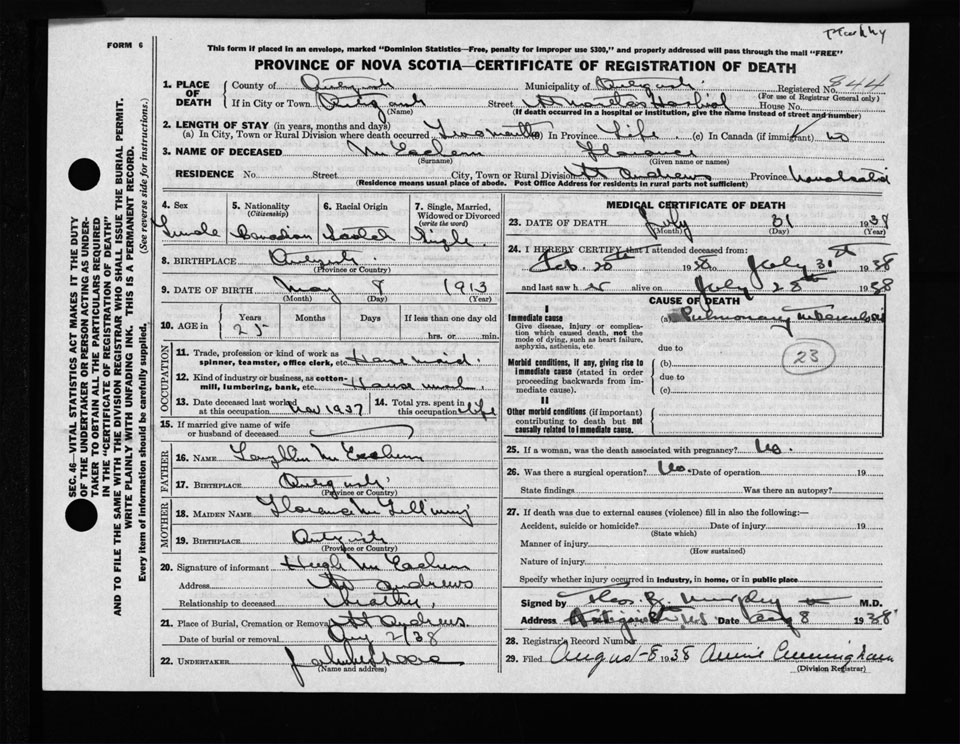 FORM 6
This form if placed in an envelope, marked "Dominion Statistics—Free, penalty for improper use $300," and properly addressed will pass through the mail "FREE"
PROVINCE OF NOVA SCOTIA—CERTIFICATE OF REGISTRATION OF DEATH
844
1. PLACE OF DEATH
County of Antigonish Municipality of Antigonish Registered No.
(For use of Registrar General only)
If in City or Town Antigonish Street St Marthas Hospital House No.
(Name) (If death occurred in a hospital or institution, give the name instead of street and number)
2. LENGTH OF STAY (in years, months and days)
(a) In City, Town or Rural Division where death occurred Two months (b) In Province Life (c) In Canada (if immigrant) no
3. NAME OF DECEASED McEachern Florence
(Surname) (Given name or names)
RESIDENCE No. Street City, Town or Rural Division St Andrews Province Nova Scotia
(Residence means usual place of abode. Post Office Address for residents in rural parts not sufficient)
SEC. 46—VITAL STATISTICS ACT MAKES IT THE DUTY
OF THE UNDERTAKER OR PERSON ACTING AS UNDER-
TAKER TO OBTAIN ALL THE PARTICULARS REQUIRED
IN THE "CERTIFICATE OF REGISTRATION OF DEATH"
AND TO FILE THE SAME WITH THE DIVISION REGISTRAR WHO SHALL ISSUE THE BURIAL PERMIT.
WRITE PLAINLY WITH UNFADING INK. THIS IS A PERMANENT RECORD.
Every item of information should be carefully supplied. (See reverse side for instructions.)
4. Sex 5. Nationality 6. Racial Origin 7. Single, Married,
(Citizenship) Widowed or Divorced
(write the word)
Female Canadian Scotch Single
8. BIRTHPLACE Antigonish
(Province or Country)
9. DATE OF BIRTH May 8 1913
(Month) (Day) (Year)
10. AGE in Years Months Days If less than one day
25 hrs. or min.
OCCUPATION
11. Trade, profession or kind of work as
spinner, teamster, office clerk, etc. House maid
12. Kind of industry or business, as cotton-
mill, lumbering, bank, etc. House work
13. Date deceased last worked
at this occupation Nov 1937
14. Total yrs. spent in
this occupation life
15. If married give name of wife
or husband of deceased
FATHER
16. NAME McEachern
17. BIRTHPLACE Antigonish
(Province or Country)
MOTHER
18. MAIDEN NAME Florence
19. BIRTHPLACE Antigonish
(Province or Country)
20. Signature of informant Hugh McEachern
Address St Andrews
Relationship to deceased
21. Place of Burial, Cremation or Removal St Andrews
Date of burial or removal Aug 2/38
22. UNDERTAKER
(Name and address)
MEDICAL CERTIFICATE OF DEATH
23. DATE OF DEATH July 31 1938
(Month) (Day) (Year)
24. I HEREBY CERTIFY that I attended deceased from:
Feb. 20th 1938 to July 31st 1938
and last saw her alive on July 28th 1938
CAUSE OF DEATH
I
Immediate cause
Give disease, injury or complica-
tion which caused death, not the
mode of dying, such as heart failure,
asphyxia, asthenia, etc.
(a) Pulmonary tuberculosis
due to
23
Morbid conditions, if any, giving rise to
immediate cause (stated in order
proceeding backwards from im-
mediate cause).
(b)
due to
(c)
II
Other morbid conditions (if important)
contributing to death but not
causally related to immediate cause.
25. If a woman, was the death associated with pregnancy? No.
26. Was there a surgical operation? No. Date of operation 19
State findings Was there an autopsy?
27. If death was due to external causes (violence) fill in also the following:—
Accident, suicide or homicide? Date of injury 19
(State which)
Manner of injury
(How sustained)
Nature of injury
Specify whether injury occurred in industry, in home, or in public place
Signed by Thos. B. Murphy M.D.
Address Antigonish N.S Date Aug 8 1938
28. Registrar's Record Number
29. Filed August 8 1938 Annie Cunningham
(Division Registrar)